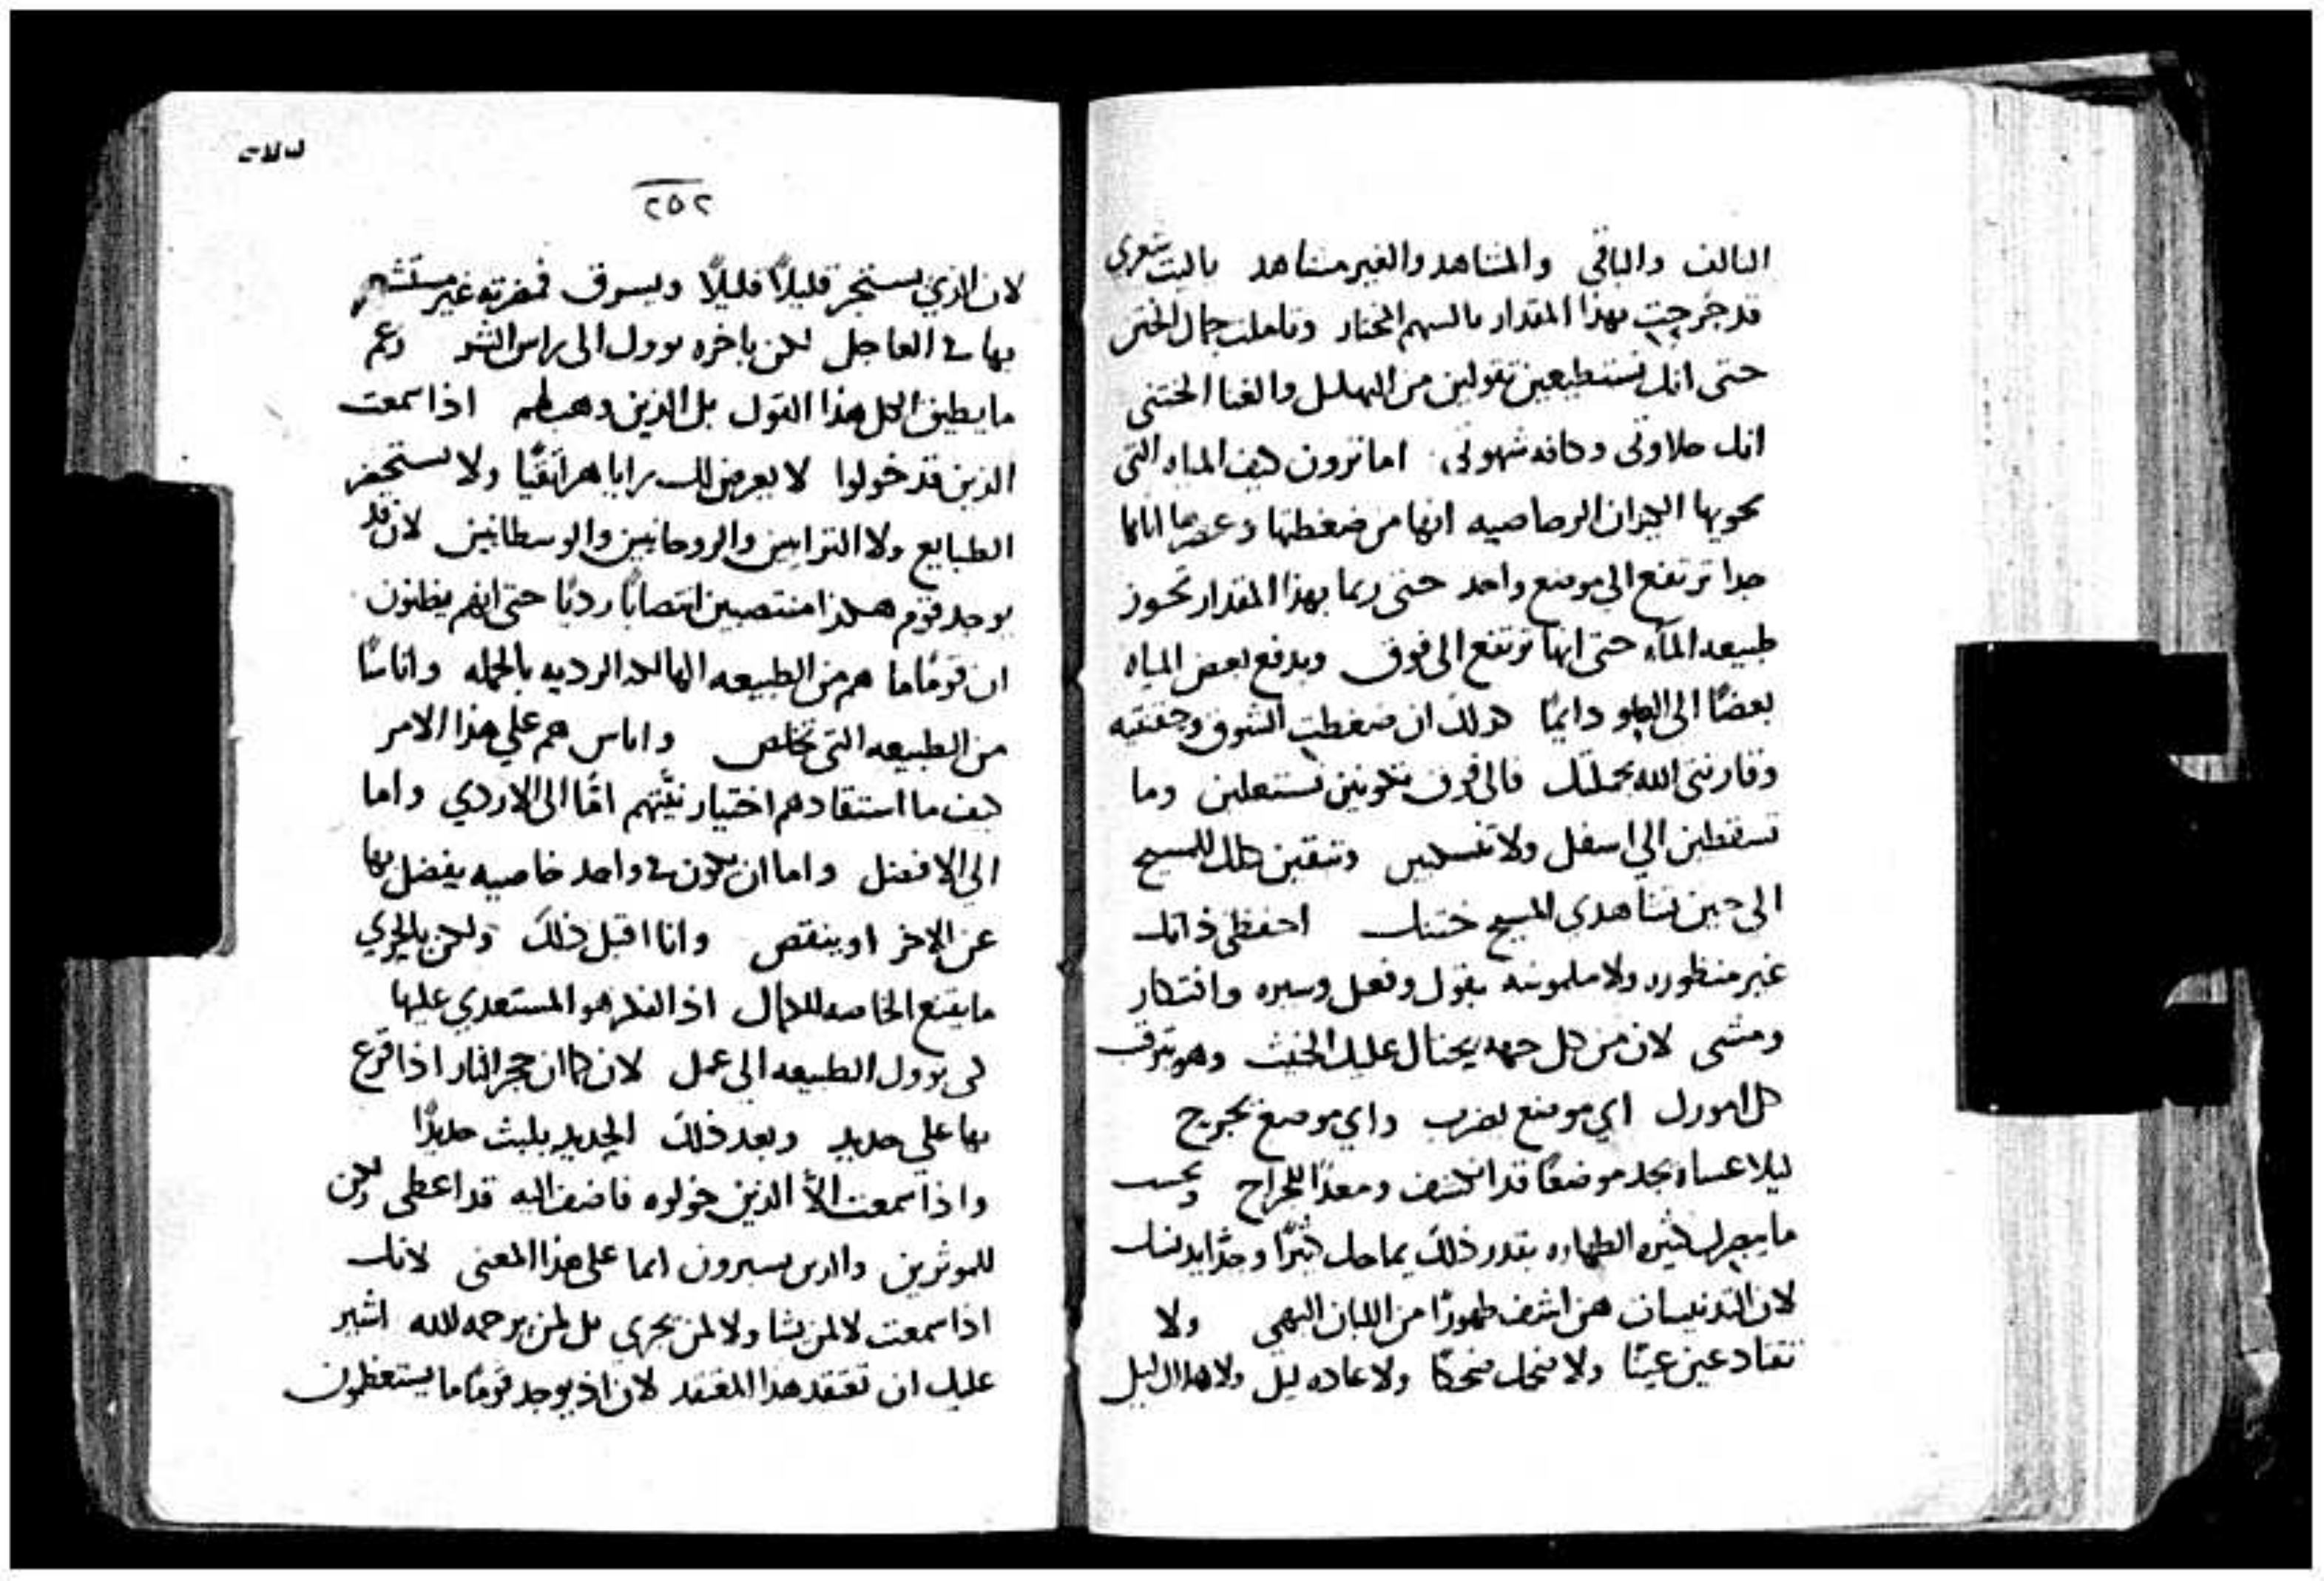 التالف والباقي والمشاهد والغير مشاهد ياليت شعري
قد جرحتِ بهذا المقدار بالسهم المختار وتاملت جمال الختن
حتى انك تستطيعين تقولين من الهليل والغنا الختني
انك حلاوتى وكافه شهوتى اما ترون كيف المياه التى
تحويها الجيزان الرصاصيه انها من ضغطتها وعصرها اياها
جدا ترتفع الي موضع واحد حتى ربما بهذا المقدار تحوز
طبيعه الماء حتى انها ترتفع الى فوق ويدفع بعض المياه
بعضًا الى العلو دايمًا كذلك ان ضغطتِ الشوق وحققتيه
وقارنتى الله بجملتك فالى فوق تكونين تستعلين وما
تسقطين الي اسفل ولا تنسكبين وتبقين كلك للمسيح
الى حين تشاهدى المسيح ختنك احفظى ذاتك
غير منظوره ولا ملموسه بقول وفعل وسيره وافتكار
ومشى لان من كل جهه يحتال عليك الخبيث وهو يترقب
كل امورك اي موضع يضرب واي موضع يجرح
ليلا عساه يجد موضعًا قد انكشف ومعدًا للجراح وبحسب
ما يبصرك كثيره الطهاره بقدر ذلك يماحك كثيرًا وجدًا يدنسك
لان التدنيسات هن اشف ظهورًا من اللبان البهي ولا
تقاد عين عينًا ولا ضحك ضحكًا ولا عاده ليل ولا هلاك ليل
٢٥٢
لان الذي يستجر قليلاً قليلاً ويسرق فمضرته غير مستشعر
بها في العاجل لكن باخره يوول الى راس الشر
ما يطيق الكل هذا القول بل الذين وهب لهم اذا سمعت
الذين قد خولوا لا يعرض لك رايا هراتقيًا ولا تستحضر
الطبايع ولا الترابيين والروحانيين والوسطانيين لان قد
يوجد قوم هكذا منتصبين انتصابًا رديًا حتى انهم يظنون
ان قومًا ما هم من الطبيعه الهالكه الرديه بالجمله واناسًا
من الطبيعه التى تخلص واناس هم علي هذا الامر
كيف ما استقادهم اختيار نيتهم امّا الى الاردي واما
الي الافضل واما ان يكون في واحد خاصيه يفضل بها
عن الاخر او ينقص وانا اقبل ذلك ولكن بالحري
ما يقنع الخاصه للكمال اذ الفكر هو المستعدي عليها
لكى توول الطبيعه الى عمل لان كما ان حجر النار اذا قرع
بها علي حديد وبعد ذلك الحديد يلبث حديدًا
واذا سمعت الا الذين خولوه فاضف اليه قد اعطى ولكن
للموثرين والذين يسيرون انما على هذا المعنى لانك
اذا سمعت لا لمن يشا ولا لمن يجري بل لمن يرحمه الله اشير
عليك ان تعتقد هذا المعتقد لان اذ يوجد قومًا ما يستعظمون